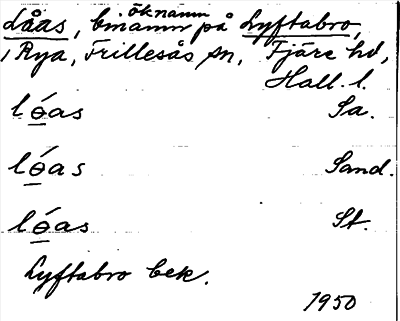 Låas, öknamn bmamn på Lyftabro,
i Rya, Frillesås sn, Fjäre hd,
Hall. l.
lóas Sa.
lóas Sand.
lóas St.
Lyftabro bek.
1950